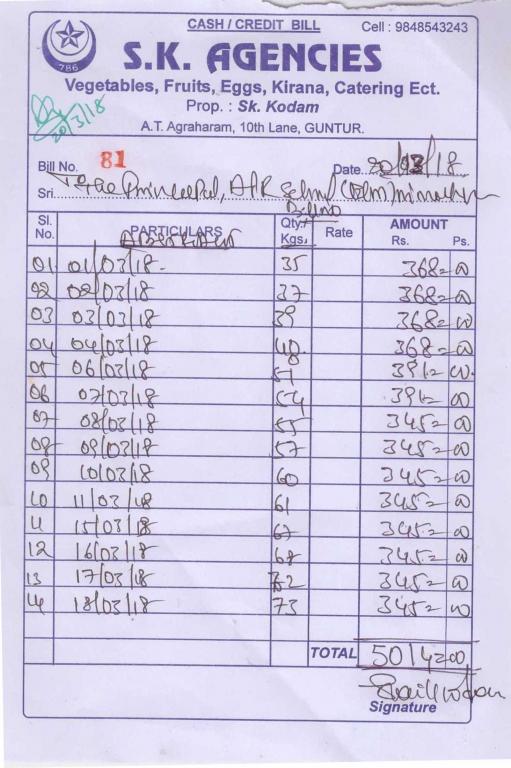 CASH / CREDIT BILL
Cell : 9848543243
786
S.K. AGENCIES
Vegetables, Fruits, Eggs, Kirana, Catering Ect.
Prop. : Sk. Kodam
A.T. Agraharam, 10th Lane, GUNTUR.
20/3/18
Bill No. 81 Date 20/03/18
Sri. The Principal, APR
Sl. No. PARTICULARS Qty./ Kgs. Rate AMOUNT Rs. Ps.
01 01/03/18 35 368=00
02 02/03/18 37 368=00
03 03/03/18 39 368=00
04 04/03/18 40 368=00
05 06/03/18 51 391=00
06 07/03/18 54 391=00
07 08/03/18 55 345=00
08 09/03/18 57 345=00
09 10/03/18 60 345=00
10 11/03/18 61 345=00
11 15/03/18 67 345=00
12 16/03/18 68 345=00
13 17/03/18 72 345=00
14 18/03/18 73 345=00
TOTAL 5014=00
Signature